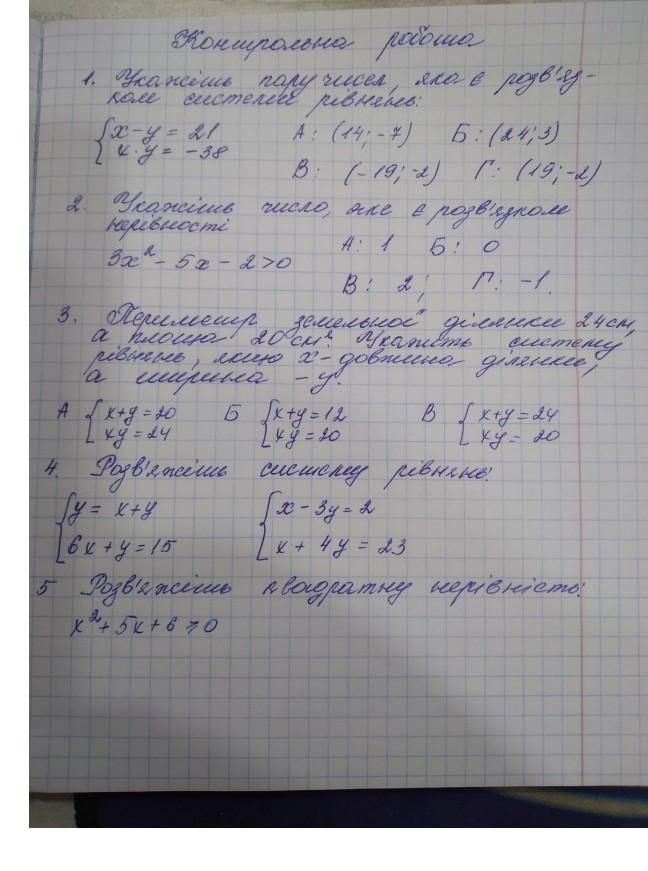 Контрольна робота
1. Укажіть пару чисел, яка є розв'яз-
ком системи рівнянь:
x - y = 21 А: (14; -7) Б: (24; 3)
x · y = -38
В: (-19; -2) Г: (19; -2)
2. Укажіть число, яке є розв'язком
нерівності
А: 1 Б: 0
3x² - 5x - 2 > 0
В: 2; Г: -1.
3. Периметр земельної ділянки 24 см,
а площа 20 см². Укажіть систему
рівнянь, якщо x - довжина ділянки,
а ширина - y.
А { x+y=20 Б { x+y=12 В { x+y=24
xy = 24 xy = 20 xy = 20
4. Розв'яжіть систему рівнянь:
y = x+y x - 3y = 2
6x + y = 15 x + 4y = 23
5 Розв'яжіть квадратну нерівність:
x² + 5x + 6 ≥ 0